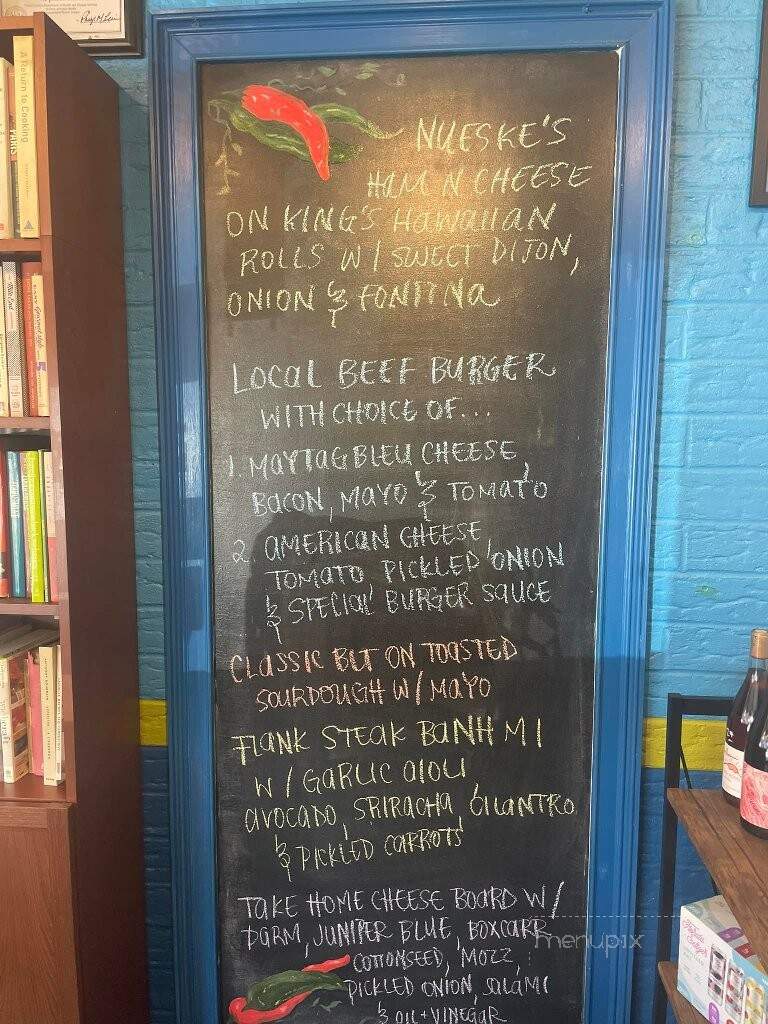 A Return to Cooking
NUESKE'S
HAM N CHEESE
ON KING'S HAWAIIAN
ROLLS W/ SWEET DIJON,
ONION & FONTINA
LOCAL BEEF BURGER
WITH CHOICE OF...
1. MAYTAG BLEU CHEESE,
BACON, MAYO & TOMATO
2. AMERICAN CHEESE,
TOMATO PICKLED ONION
& SPECIAL BURGER SAUCE
CLASSIC BLT ON TOASTED
SOURDOUGH W/ MAYO
FLANK STEAK BANH MI
W/ GARLIC AIOLI
AVOCADO, SRIRACHA, CILANTRO
& PICKLED CARROTS
TAKE HOME CHEESE BOARD W/
PARM, JUNIPER BLUE, BOXCARR
COTTONSEED, MOZZ,
PICKLED ONION, SALAMI
& OIL + VINEGAR
menupix